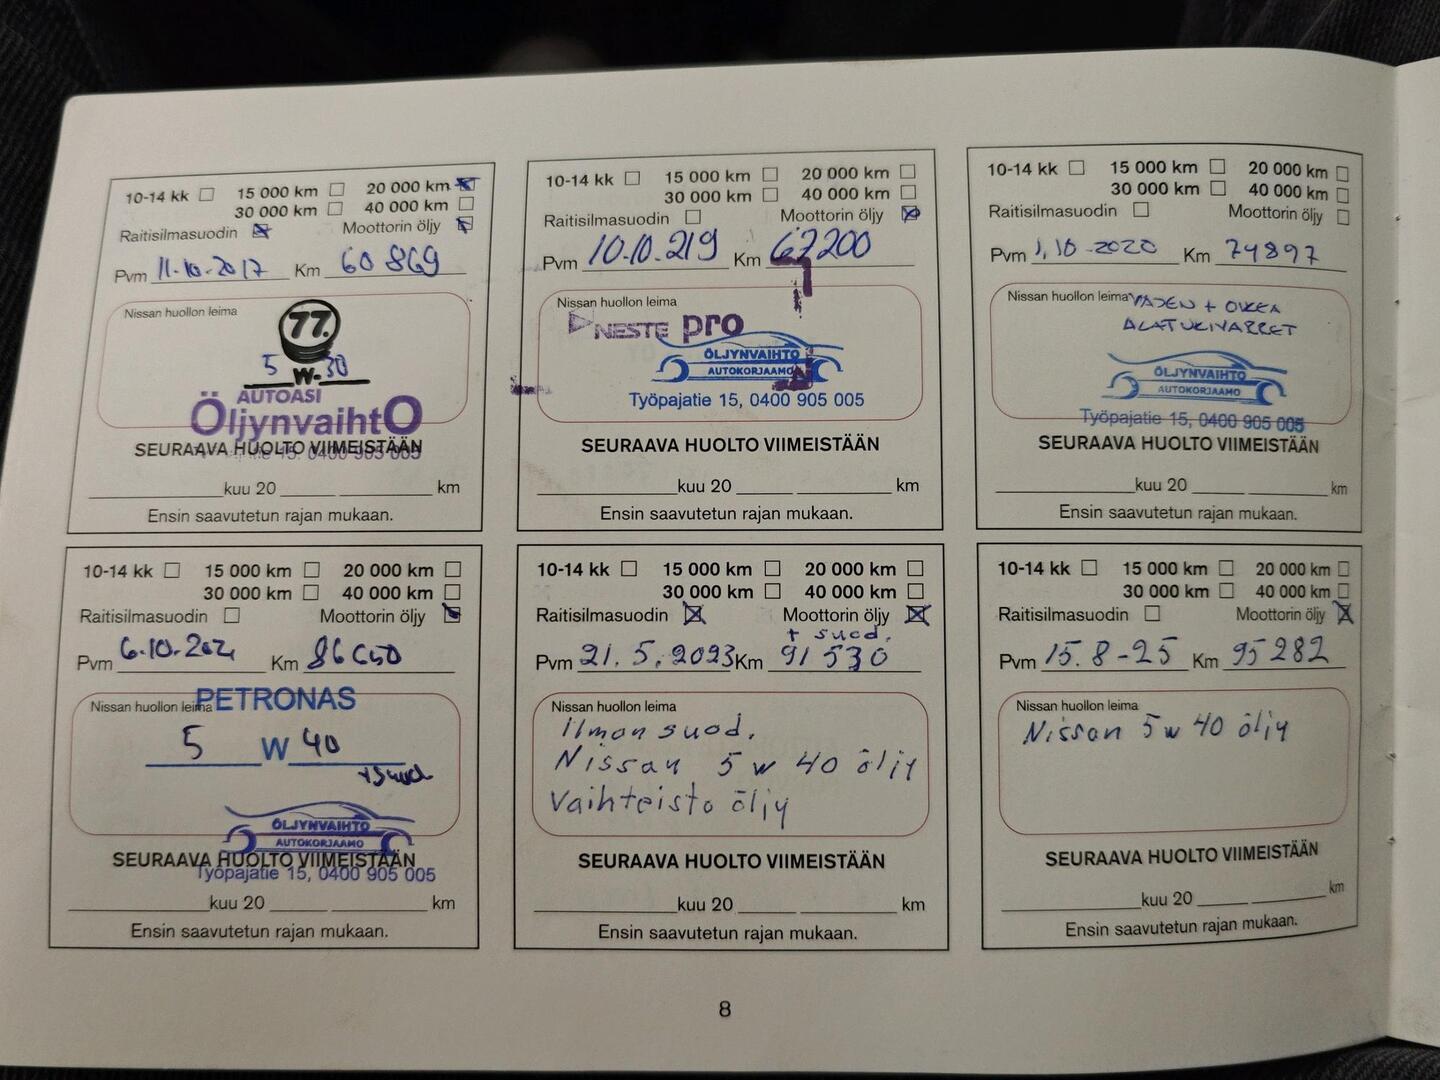 10-14 kk 15 000 km 20 000 km
30 000 km 40 000 km
Raitisilmasuodin Moottorin öljy
Pvm 11.10.2017 Km 60 869
Nissan huollon leima
77.
5 W-30
AUTOASI
ÖljynvaihtO
SEURAAVA HUOLTO VIIMEISTÄÄN
15. 0400 905 005
kuu 20 km
Ensin saavutetun rajan mukaan.
10-14 kk 15 000 km 20 000 km
30 000 km 40 000 km
Raitisilmasuodin Moottorin öljy
Pvm 10.10.219 Km 67200
Nissan huollon leima
NESTE pro
ÖLJYNVAIHTO
AUTOKORJAAMO
Työpajatie 15, 0400 905 005
SEURAAVA HUOLTO VIIMEISTÄÄN
kuu 20 km
Ensin saavutetun rajan mukaan.
10-14 kk 15 000 km 20 000 km
30 000 km 40 000 km
Raitisilmasuodin Moottorin öljy
Pvm 1.10-2020 Km 74897
Nissan huollon leima VASEN + OIKEA
ALATUKIVARRET
ÖLJYNVAIHTO
AUTOKORJAAMO
Työpajatie 15, 0400 905 005
SEURAAVA HUOLTO VIIMEISTÄÄN
kuu 20 km
Ensin saavutetun rajan mukaan.
10-14 kk 15 000 km 20 000 km
30 000 km 40 000 km
Raitisilmasuodin Moottorin öljy
Pvm Km
Nissan huollon leima PETRONAS
5 W 40
+suod
ÖLJYNVAIHTO
AUTOKORJAAMO
SEURAAVA HUOLTO VIIMEISTÄÄN
Työpajatie 15, 0400 905 005
kuu 20 km
Ensin saavutetun rajan mukaan.
10-14 kk 15 000 km 20 000 km
30 000 km 40 000 km
Raitisilmasuodin Moottorin öljy
+ suod.
Pvm 21.5.2023 Km 91 530
Nissan huollon leima
ilman suod.
Nissan 5w 40 öljy
Vaihteisto öljy
SEURAAVA HUOLTO VIIMEISTÄÄN
kuu 20 km
Ensin saavutetun rajan mukaan.
10-14 kk 15 000 km 20 000 km
30 000 km 40 000 km
Raitisilmasuodin Moottorin öljy
Pvm 15.8-25 Km 95 282
Nissan huollon leima
Nissan 5w 40 öljy
SEURAAVA HUOLTO VIIMEISTÄÄN
kuu 20 km
Ensin saavutetun rajan mukaan.
8